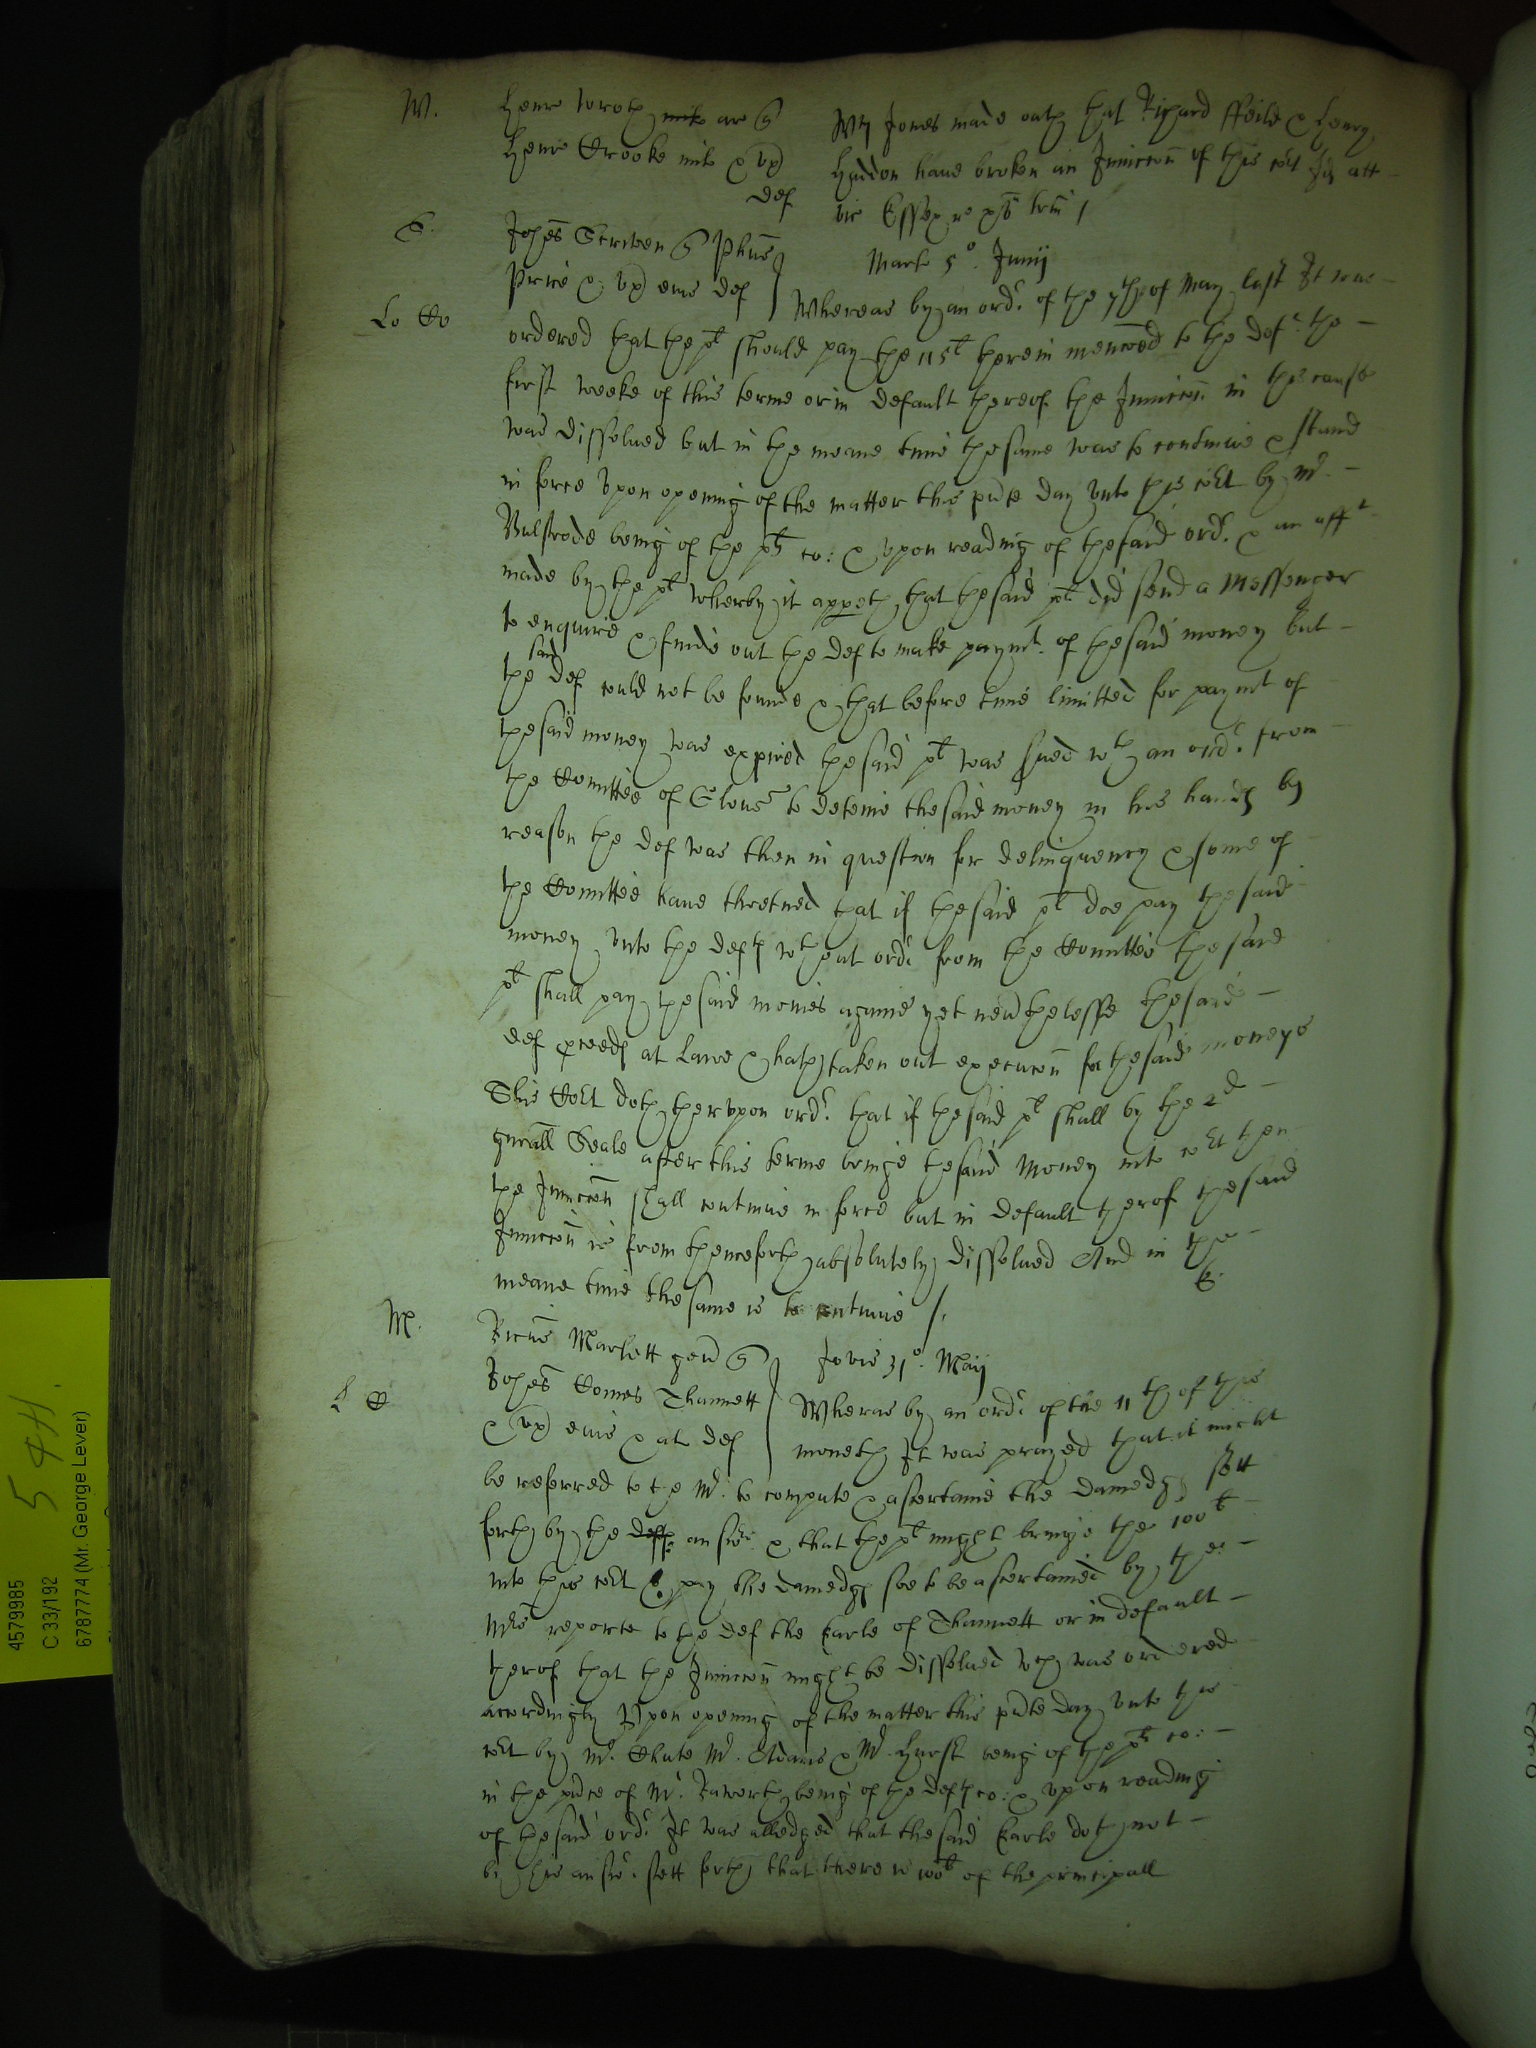 W.
Henr Wroth milt ar q
Henr Crooke milt & ux
def
Wm Jones made oath that Richard ffeild & Henry
Haddon have broken an Iniuccon of this cort Id att
vic Essex
S.
Johes Scriven q
Price & ux eius def
Martis 5o. Junij
Lo Co
Whereas by an ordr. of the 7th of May last It was
ordered that the plt should pay the 115l therein menconed to the deft. the
first weeke of this terme or in default thereof the Iniuccon in this cause
was dissolued but in the meane time the same was to continue & stand
in force Vpon opening of the matter this pnte day vnto this cort by Mr.
Bulstrode being of the plts co: & vpon reading of the said ordr. & an afft
made by the plt wherby it appeth that the said plt did send a Messenger
to enquire & finde out the def to make paymt. of the said money but
the said def could not be founde & that before time limitted for paymt of
the said money was expired the said plt was sued wth an ordr. from
the Comittee of Glouc to deteine the said money in his hands by
reason the def was then in question for delinquency & some of
the Comittee have thretned that if the said plt doe pay the said
money vnto the deft wthout ordr from the Comittee the said
plt shall pay the said monies againe yet neuthelesse the said
def proceeds at Lawe & hath taken out execucon for the said moneys
This Cort doth thervpon ordr. that if the said plt shall by the 2d
gnrall Seale after this terme bringe the said Money into cort then
the Iniuccon shall continue in force but in default therof the said
Iniuccon is from thenceforth absolutely dissolued And in the
meane time the same is to continue /.
M.
Ricus Marlett gen q
Johes Comes Thannett
& ux eius & al def
L C
Jovis 31o. Maij
Wheras by an ordr of the 11th of this
moneth It was prayed that it might
be referred to the Mr. to compute & ascertaine the damedgs sett
forth by the defts answr & that the plt might bringe the 100l
into this cort & pay the damedgs soe to be ascertained by the
Mrs reporte to the def the Earle of Thannett or in default
therof that the Iniuccon might be dissolued wch was ordered
accordingly Vpon opening of the matter this pnte day vnto this
cort by Mr. Chute Mr. Adams & Mr Hurst being of the plts co:
in the pnce of Mr. Haworth being of the defts co: & vpon reading
of the said ordr It was alledged that the said Earle doth not
by his answr. sett forth that there is 100l of the principall
4579985
C 33/192
6787774 (Mr. George Lever)